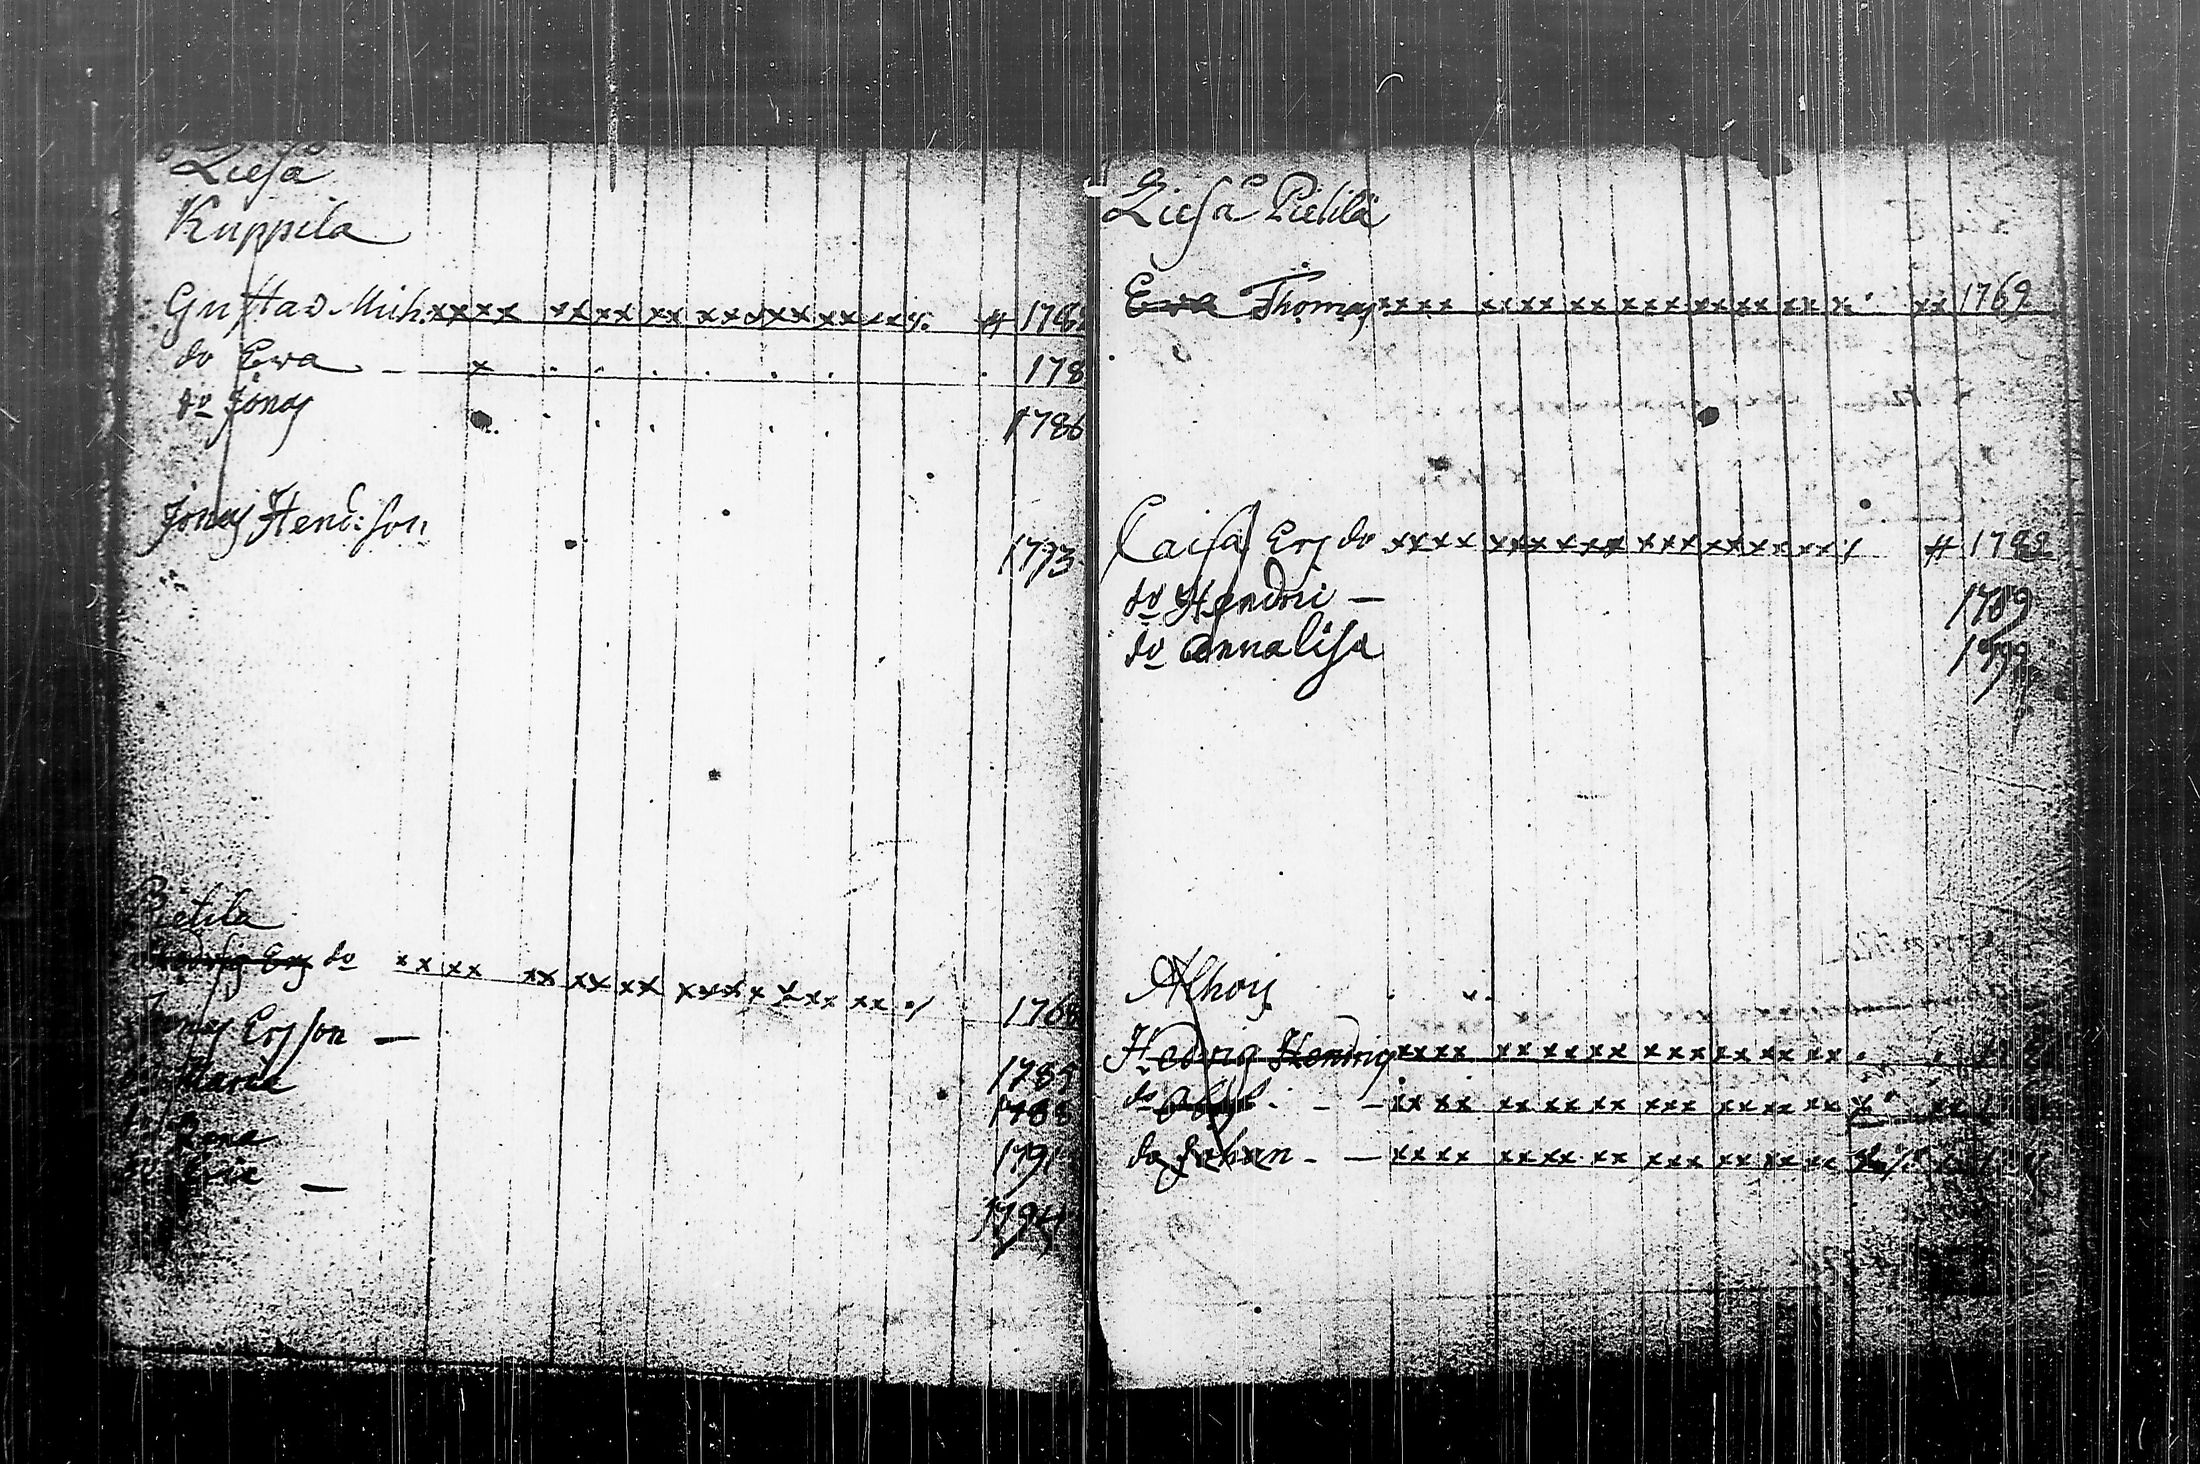 Liesa
Kuppila
Gustav Mich: xxxx xxxx xx xxxxxx xxxx # 178
do Ewa - x 178
do Jonas 1786
Jonas Hend:son 1773
Pietila
Hedvig Ers do xxxx xx xx xx xxxx x xxx xx 1768
Jonas Ersson — 178
do Maria 1788
do Lena 1791
do Eric — 1794
Liesa Pietilä
Ewa Thomas xxxx xxxx xx xxx xx xx xx x xx 1769
Caisa Ers do xxxx xxx xxx xxx xx xx xx # 1782
do Hendri — 1789
do Annalisa 1799
Alhois
Hedvig Hendrig xxxx xx xx xx xxx xx xx xx
do - - - xx xx xx xx xx xxx xx xx xx
do Johan - — xx xx xxxx xx xxx xx xx xx